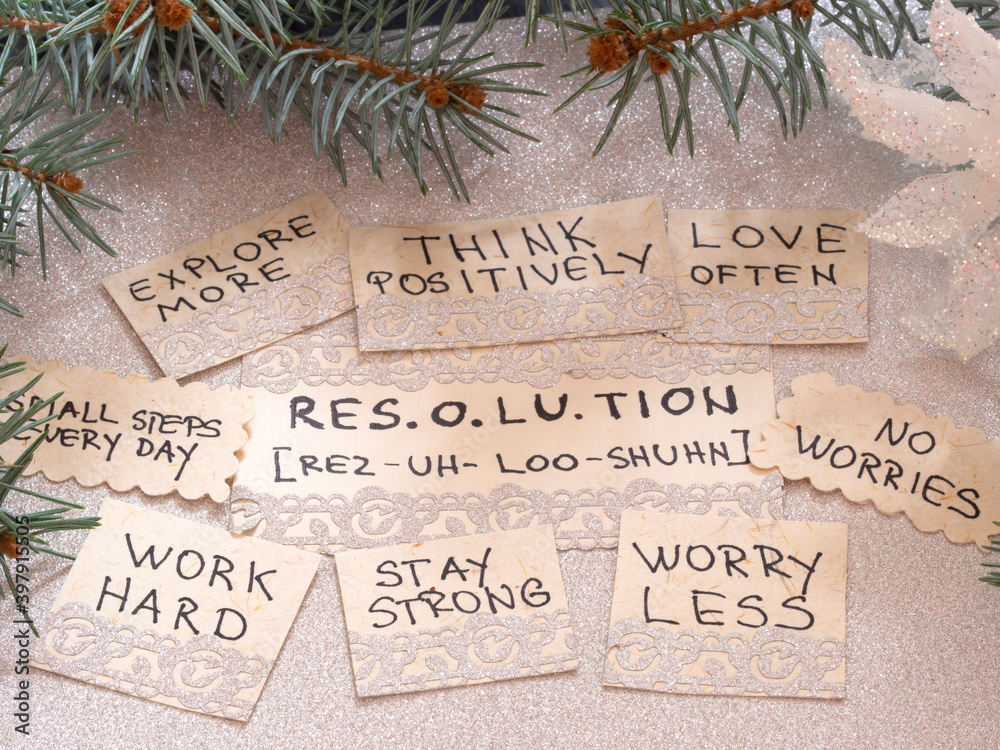 EXPLORE
MORE
THINK
POSITIVELY
LOVE
OFTEN
SMALL STEPS
EVERY DAY
RES.O.LU.TION
[REZ-UH-LOO-SHUHN]
NO
WORRIES
WORK
HARD
STAY
STRONG
WORRY
LESS
Adobe Stock | #397915505